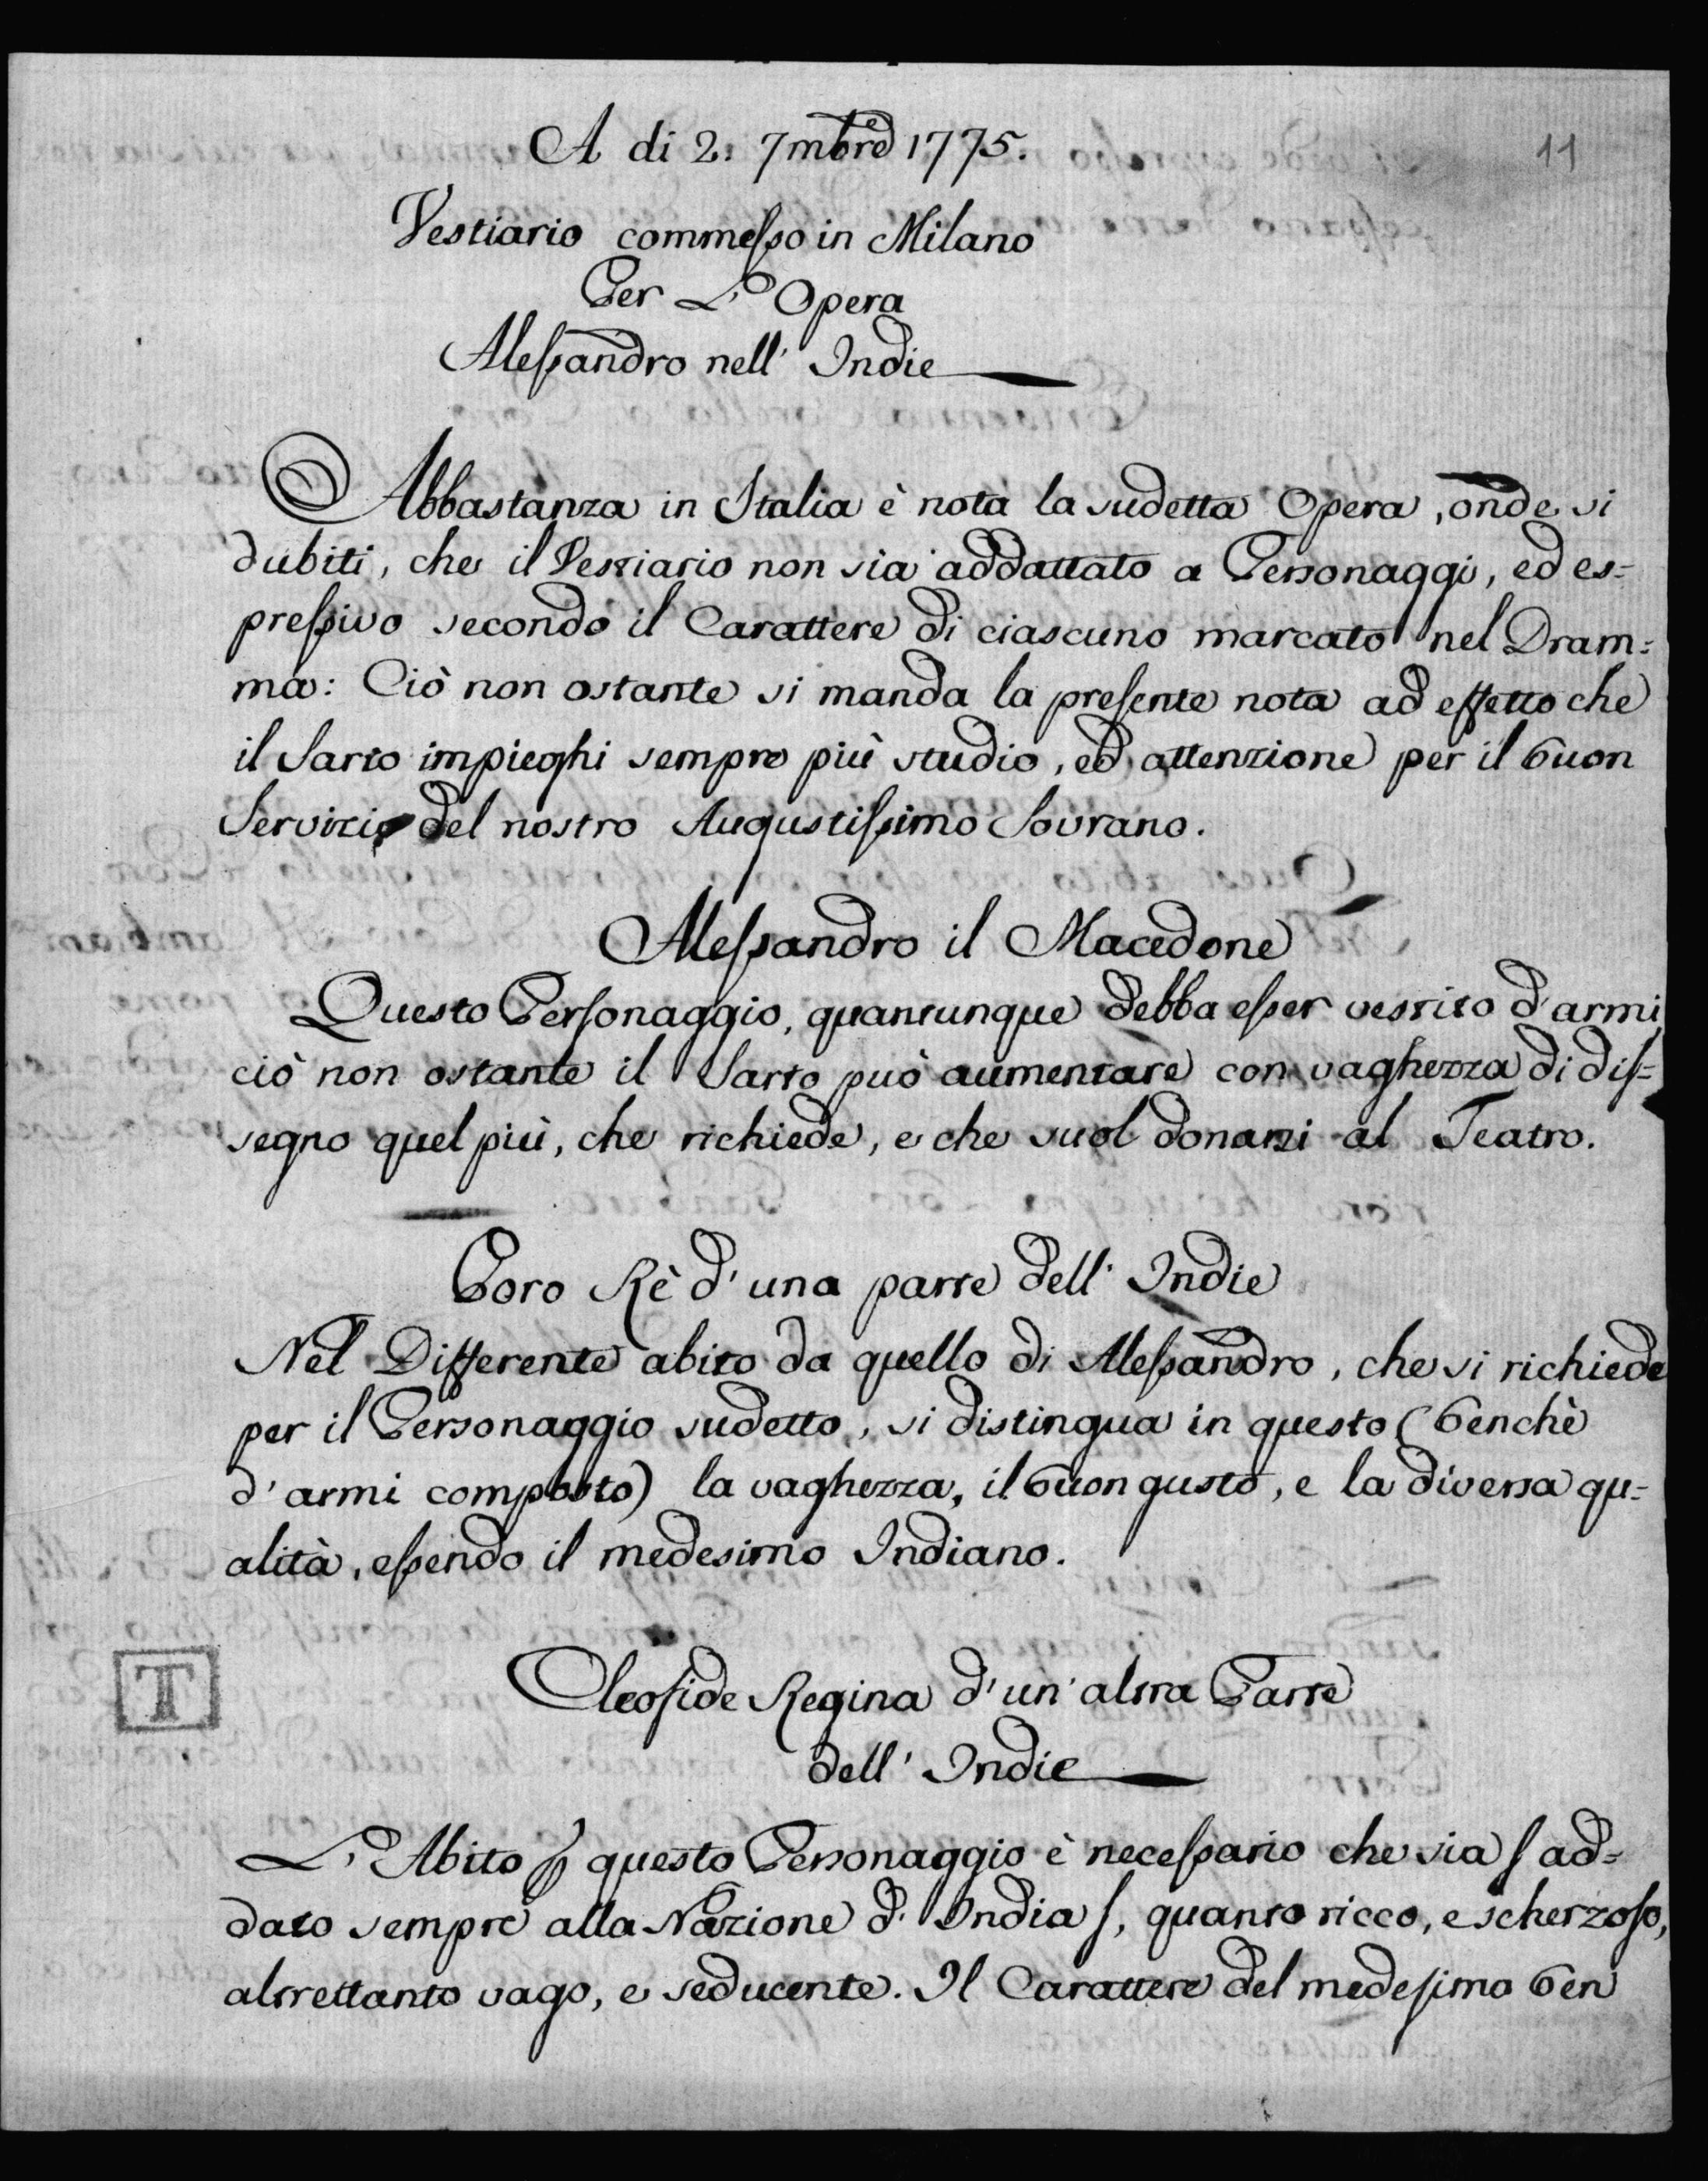 11
A di 2. 7mbre 1775.
Vestiario commesso in Milano
Per L'Opera
Alessandro nell' Indie
Abbastanza in Italia è nota la sudetta Opera, onde si
dubiti, che il Vestiario non sia addattato a Personaggi, ed es=
pressivo secondo il Carattere di ciascuno marcato nel Dram=
ma: Ciò non ostante si manda la presente nota ad effetto che
il Sarto impieghi sempre più studio, ed attenzione per il buon
Servizio del nostro Augustissimo Sovrano.
Alessandro il Macedone
Questo Personaggio, quantunque debba esser vestito d'armi
ciò non ostante il Sarto può aumentare con vaghezza di dis=
segno quel più, che richiede, e che suol donarsi al Teatro.
Poro Rè d'una parte dell' Indie
Nel Differente abito da quello di Alessandro, che si richiede
per il Personaggio sudetto, si distingua in questo (benchè
d'armi composto) la vaghezza, il buon gusto, e la diversa qu=
alità, essendo il medesimo Indiano.
Cleofide Regina d'un'altra Parte
dell' Indie
T
L'Abito p questo Personaggio è necessario che sia ſ ad=
dato sempre alla Nazione d'India ſ, quanto ricco, e scherzoso,
altrettanto vago, e seducente. Il Carattere del medesimo ben